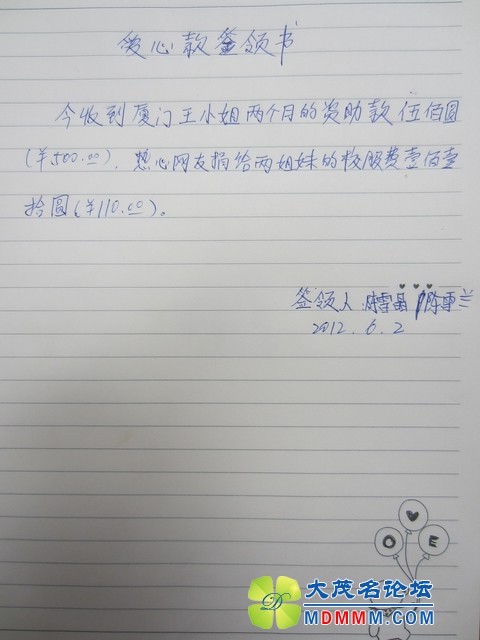 爱心款签领书
今收到厦门王小姐两个月的资助款伍佰圆
(￥500.00). 热心网友捐给两姐妹的校服费壹佰壹
拾圆(￥110.00)。
签领人:陈雪晶 陈重兰
2012.6.2
O E
大茂名论坛
MDMMM.COM